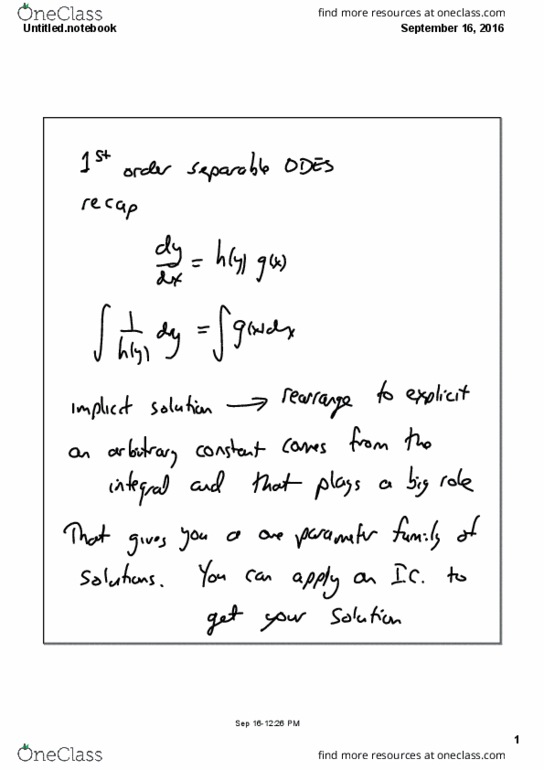 OneClass
find more resources at oneclass.com
Untitled.notebook
September 16, 2016
1st order separable ODEs
recap
dy/dx = h(y) g(x)
∫ 1/h(y) dy = ∫ g(x) dx
implicit solution → rearrange to explicit
an arbitrary constant comes from the
integral and that plays a big role
That gives you a one parameter family of
solutions. You can apply an I.C. to
get your solution
Sep 16-12:26 PM
1
OneClass
find more resources at oneclass.com